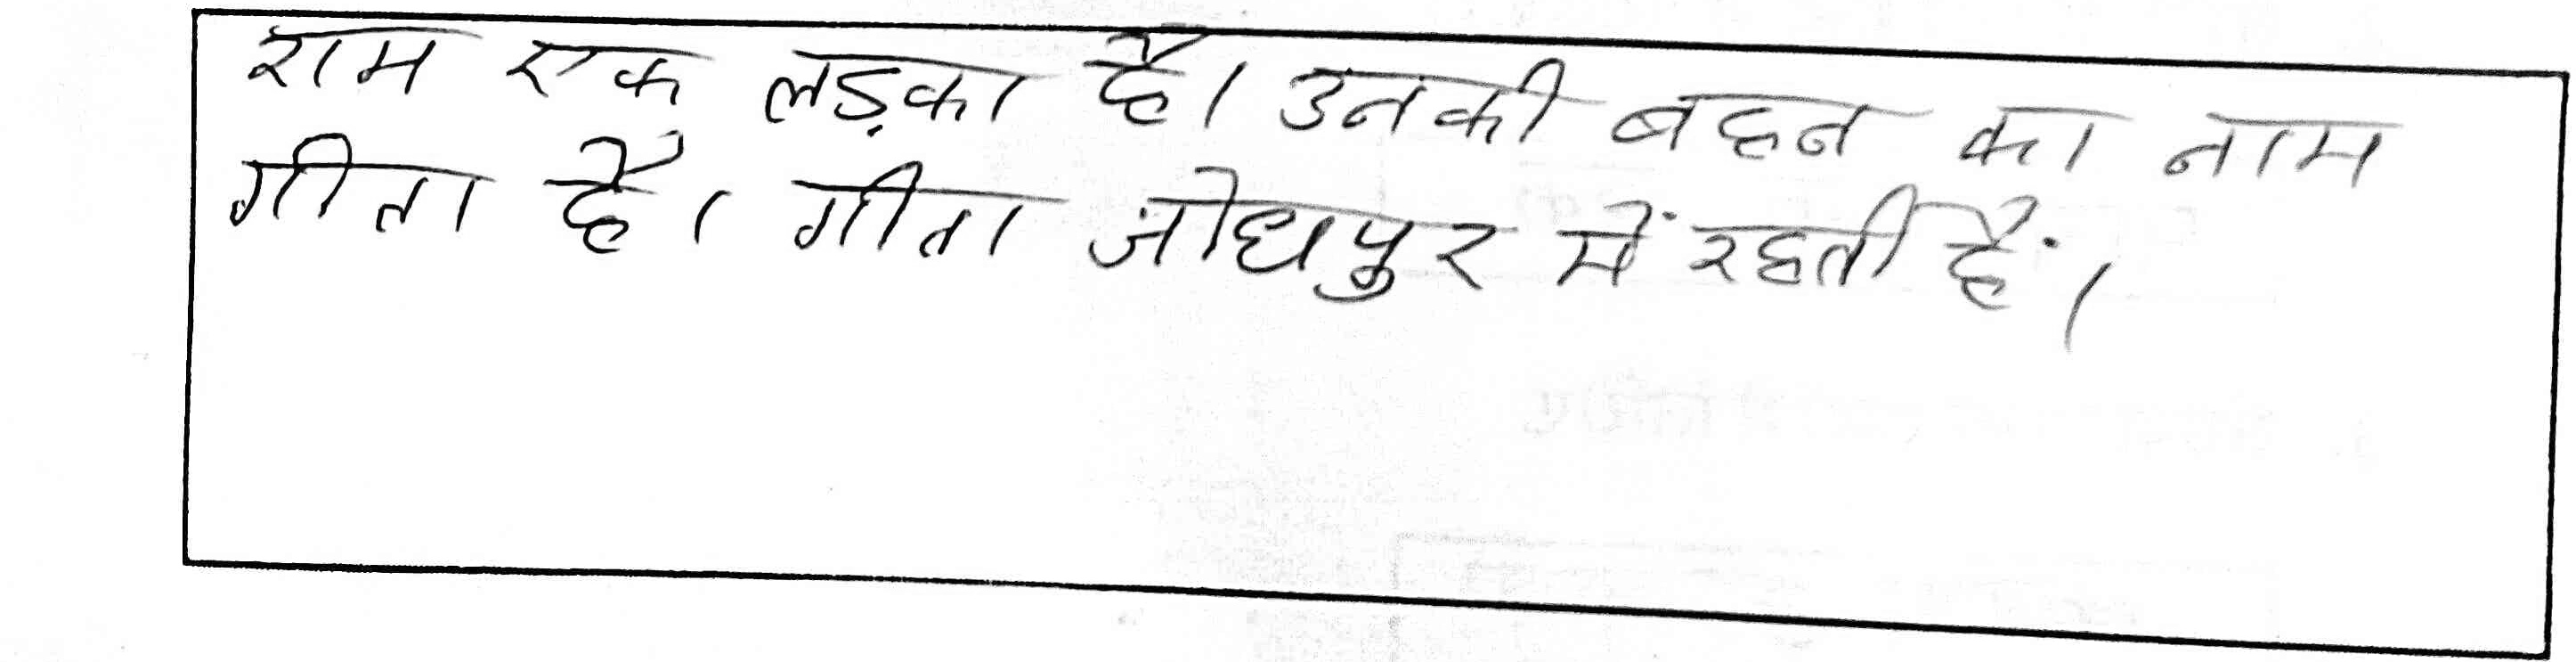 राम एक लड़का है। उनकी बहन का नाम
गीता है। गीता जोधपुर में रहती हैं।